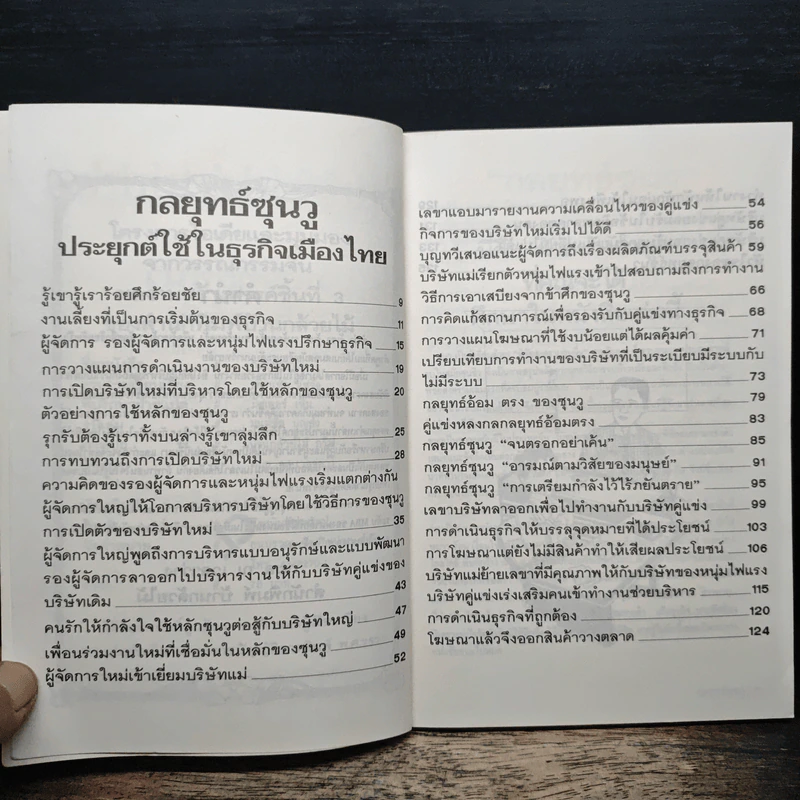 กลยุทธ์ซุนวู
ประยุกต์ใช้ในธุรกิจเมืองไทย
รู้เขารู้เราร้อยศึกร้อยชัย 9
งานเลี้ยงที่เป็นการเริ่มต้นของธุรกิจ 11
ผู้จัดการ รองผู้จัดการและหนุ่มไฟแรงปรึกษาธุรกิจ 15
การวางแผนการดำเนินงานของบริษัทใหม่ 19
การเปิดบริษัทใหม่ที่บริหารโดยใช้หลักของซุนวู 20
ตัวอย่างการใช้หลักของซุนวู
รุกรับต้องรู้เราทั้งบนล่างรู้เขาลุ่มลึก 25
การทบทวนถึงการเปิดบริษัทใหม่ 28
ความคิดของรองผู้จัดการและหนุ่มไฟแรงเริ่มแตกต่างกัน
ผู้จัดการใหญ่ให้โอกาสบริหารบริษัทโดยใช้วิธีการของซุนวู
การเปิดตัวของบริษัทใหม่ 35
ผู้จัดการใหญ่พูดถึงการบริหารแบบอนุรักษ์และแบบพัฒนา
รองผู้จัดการลาออกไปบริหารงานให้กับบริษัทคู่แข่งของ
บริษัทเดิม 43
คนรักให้กำลังใจใช้หลักซุนวูต่อสู้กับบริษัทใหญ่ 47
เพื่อนร่วมงานใหม่ที่เชื่อมั่นในหลักของซุนวู 49
ผู้จัดการใหม่เข้าเยี่ยมบริษัทแม่ 52
เลขาแอบมารายงานความเคลื่อนไหวของคู่แข่ง 54
กิจการของบริษัทใหม่เริ่มไปได้ดี 56
บุญทวีเสนอแนะผู้จัดการถึงเรื่องผลิตภัณฑ์บรรจุสินค้า 59
บริษัทแม่เรียกตัวหนุ่มไฟแรงเข้าไปสอบถามถึงการทำงาน
วิธีการเอาเสบียงจากข้าศึกของซุนวู 66
การคิดแก้สถานการณ์เพื่อรองรับกับคู่แข่งทางธุรกิจ 68
การวางแผนโฆษณาที่ใช้งบน้อยแต่ได้ผลคุ้มค่า 71
เปรียบเทียบการทำงานของบริษัทที่เป็นระเบียบมีระบบกับ
ไม่มีระบบ 73
กลยุทธ์อ้อม ตรง ของซุนวู 79
คู่แข่งหลงกลกลยุทธ์อ้อมตรง 83
กลยุทธ์ซุนวู “จนตรอกอย่าเค้น” 85
กลยุทธ์ซุนวู “อารมณ์ตามวิสัยของมนุษย์” 91
กลยุทธ์ซุนวู “การเตรียมกำลังไว้ไร้ภยันตราย” 95
เลขาบริษัทลาออกเพื่อไปทำงานกับบริษัทคู่แข่ง 99
การดำเนินธุรกิจให้บรรลุจุดหมายที่ได้ประโยชน์ 103
การโฆษณาแต่ยังไม่มีสินค้าทำให้เสียผลประโยชน์ 106
บริษัทแม่ย้ายเลขาที่มีคุณภาพให้กับบริษัทของหนุ่มไฟแรง
บริษัทคู่แข่งเร่งเสริมคนเข้าทำงานช่วยบริหาร 115
การดำเนินธุรกิจที่ถูกต้อง 120
โฆษณาแล้วจึงออกสินค้าวางตลาด 124